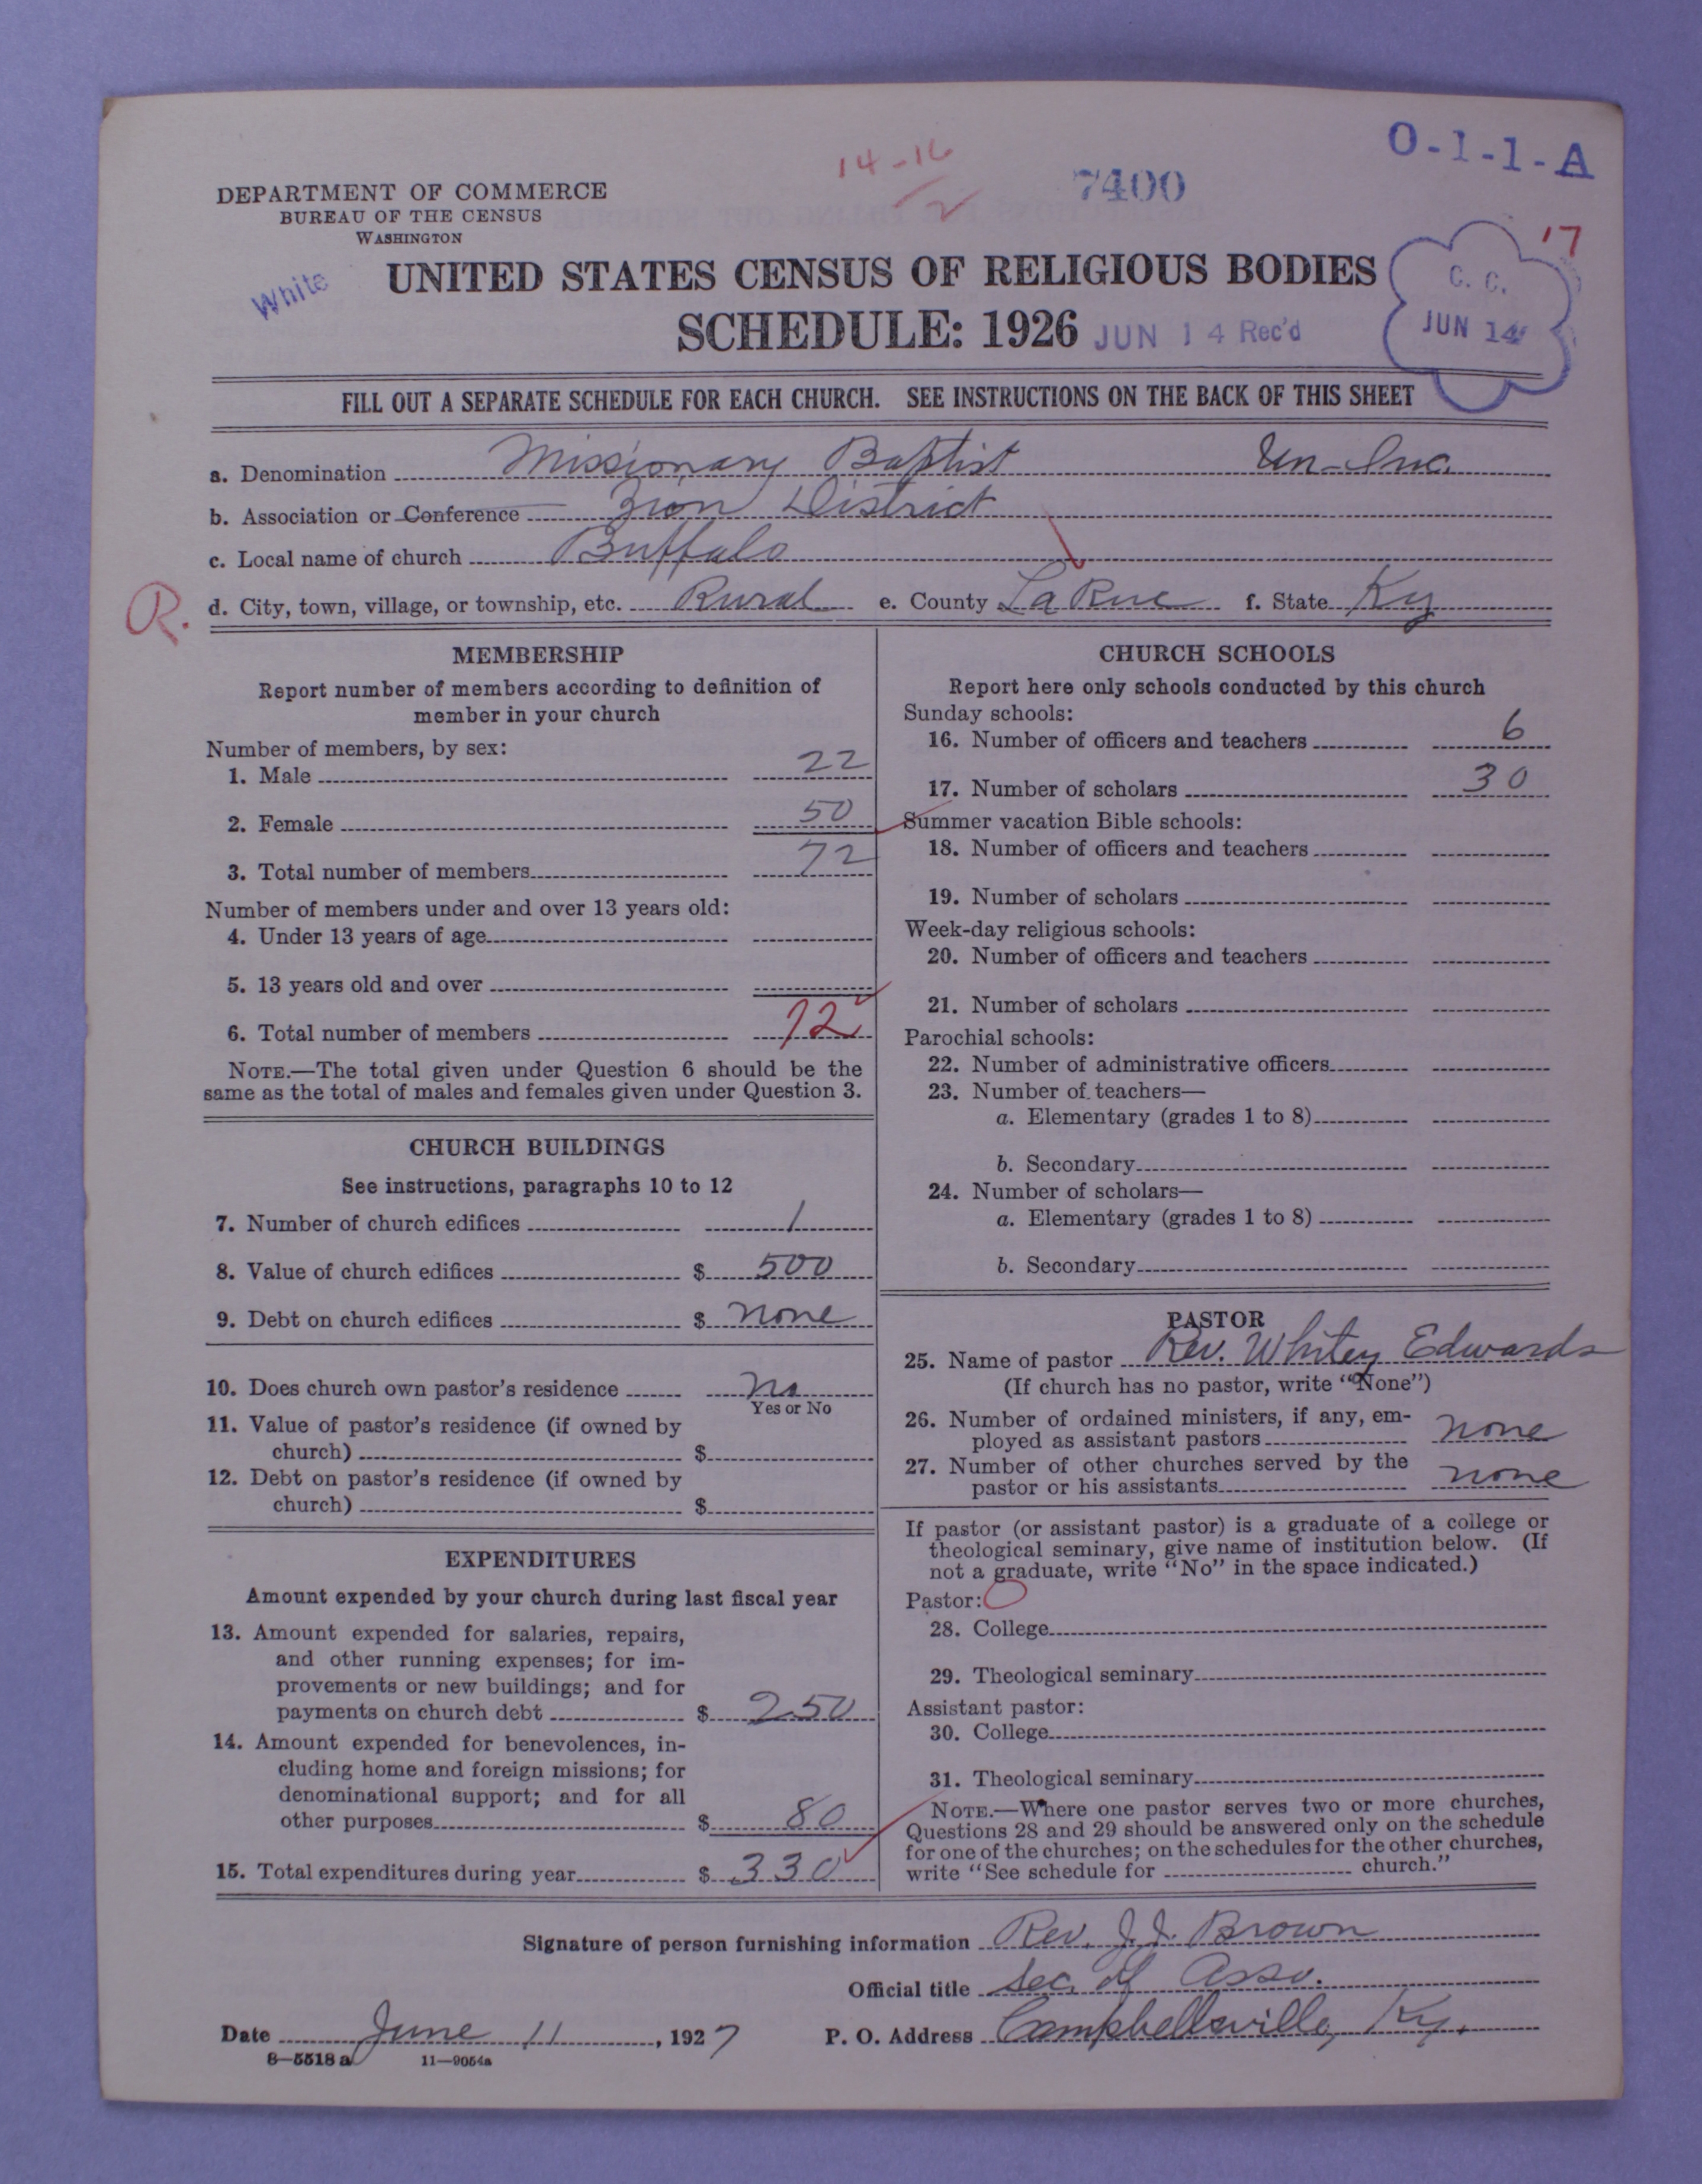 O-1-1-A
14-16
2
7400
DEPARTMENT OF COMMERCE
BUREAU OF THE CENSUS
WASHINGTON
White
UNITED STATES CENSUS OF RELIGIOUS BODIES
SCHEDULE: 1926
JUN 14 Rec'd
17
C. C.
JUN 14
FILL OUT A SEPARATE SCHEDULE FOR EACH CHURCH. SEE INSTRUCTIONS ON THE BACK OF THIS SHEET
a. Denomination Missionary Baptist Un-Inc.
b. Association or Conference Zion District
c. Local name of church Buffalo
R.
d. City, town, village, or township, etc. Rural e. County La Rue f. State Ky
MEMBERSHIP
Report number of members according to definition of
member in your church
Number of members, by sex:
1. Male 22
2. Female 50
3. Total number of members 72
Number of members under and over 13 years old:
4. Under 13 years of age
5. 13 years old and over
6. Total number of members 72
NOTE.—The total given under Question 6 should be the
same as the total of males and females given under Question 3.
CHURCH BUILDINGS
See instructions, paragraphs 10 to 12
7. Number of church edifices 1
8. Value of church edifices $ 500
9. Debt on church edifices $ none
10. Does church own pastor's residence no
Yes or No
11. Value of pastor's residence (if owned by
church) $
12. Debt on pastor's residence (if owned by
church) $
EXPENDITURES
Amount expended by your church during last fiscal year
13. Amount expended for salaries, repairs,
and other running expenses; for im-
provements or new buildings; and for
payments on church debt $ 250
14. Amount expended for benevolences, in-
cluding home and foreign missions; for
denominational support; and for all
other purposes $ 80
15. Total expenditures during year $ 330
CHURCH SCHOOLS
Report here only schools conducted by this church
Sunday schools:
16. Number of officers and teachers 6
17. Number of scholars 30
Summer vacation Bible schools:
18. Number of officers and teachers
19. Number of scholars
Week-day religious schools:
20. Number of officers and teachers
21. Number of scholars
Parochial schools:
22. Number of administrative officers
23. Number of teachers—
a. Elementary (grades 1 to 8)
b. Secondary
24. Number of scholars—
a. Elementary (grades 1 to 8)
b. Secondary
PASTOR
25. Name of pastor Rev. Whitey Edwards
(If church has no pastor, write "None")
26. Number of ordained ministers, if any, em-
ployed as assistant pastors none
27. Number of other churches served by the
pastor or his assistants none
If pastor (or assistant pastor) is a graduate of a college or
theological seminary, give name of institution below. (If
not a graduate, write "No" in the space indicated.)
Pastor: O
28. College
29. Theological seminary
Assistant pastor:
30. College
31. Theological seminary
NOTE.—Where one pastor serves two or more churches,
Questions 28 and 29 should be answered only on the schedule
for one of the churches; on the schedules for the other churches,
write "See schedule for church."
Signature of person furnishing information Rev. J. J. Brown
Official title Sec. of Asso.
Date June 11, 1927 P. O. Address Campbellsville, Ky.
8—5518 a 11—9054a